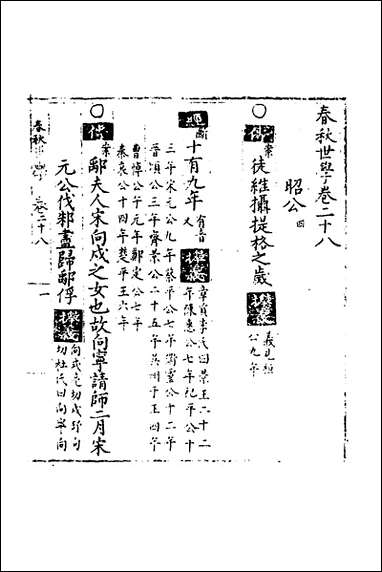 春秋世學卷二十八
昭公 四
案徒維攝提格之歲 義見桓公九年
經 十有九年 有音又 李氏曰景王二十二年陳惠公七年杞平公十
三年宋元公九年蔡平公七年衛靈公十二年
晉頃公三年齊景公二十五年吳州于王四年
曹悼公午元年鄭定公七年
秦哀公十四年楚平王六年
傳 案鄅夫人宋向戌之女也故向寧請師二月宋
元公伐邾盡歸鄅俘 切杜氏曰向寧向
春秋 卷二十八 一